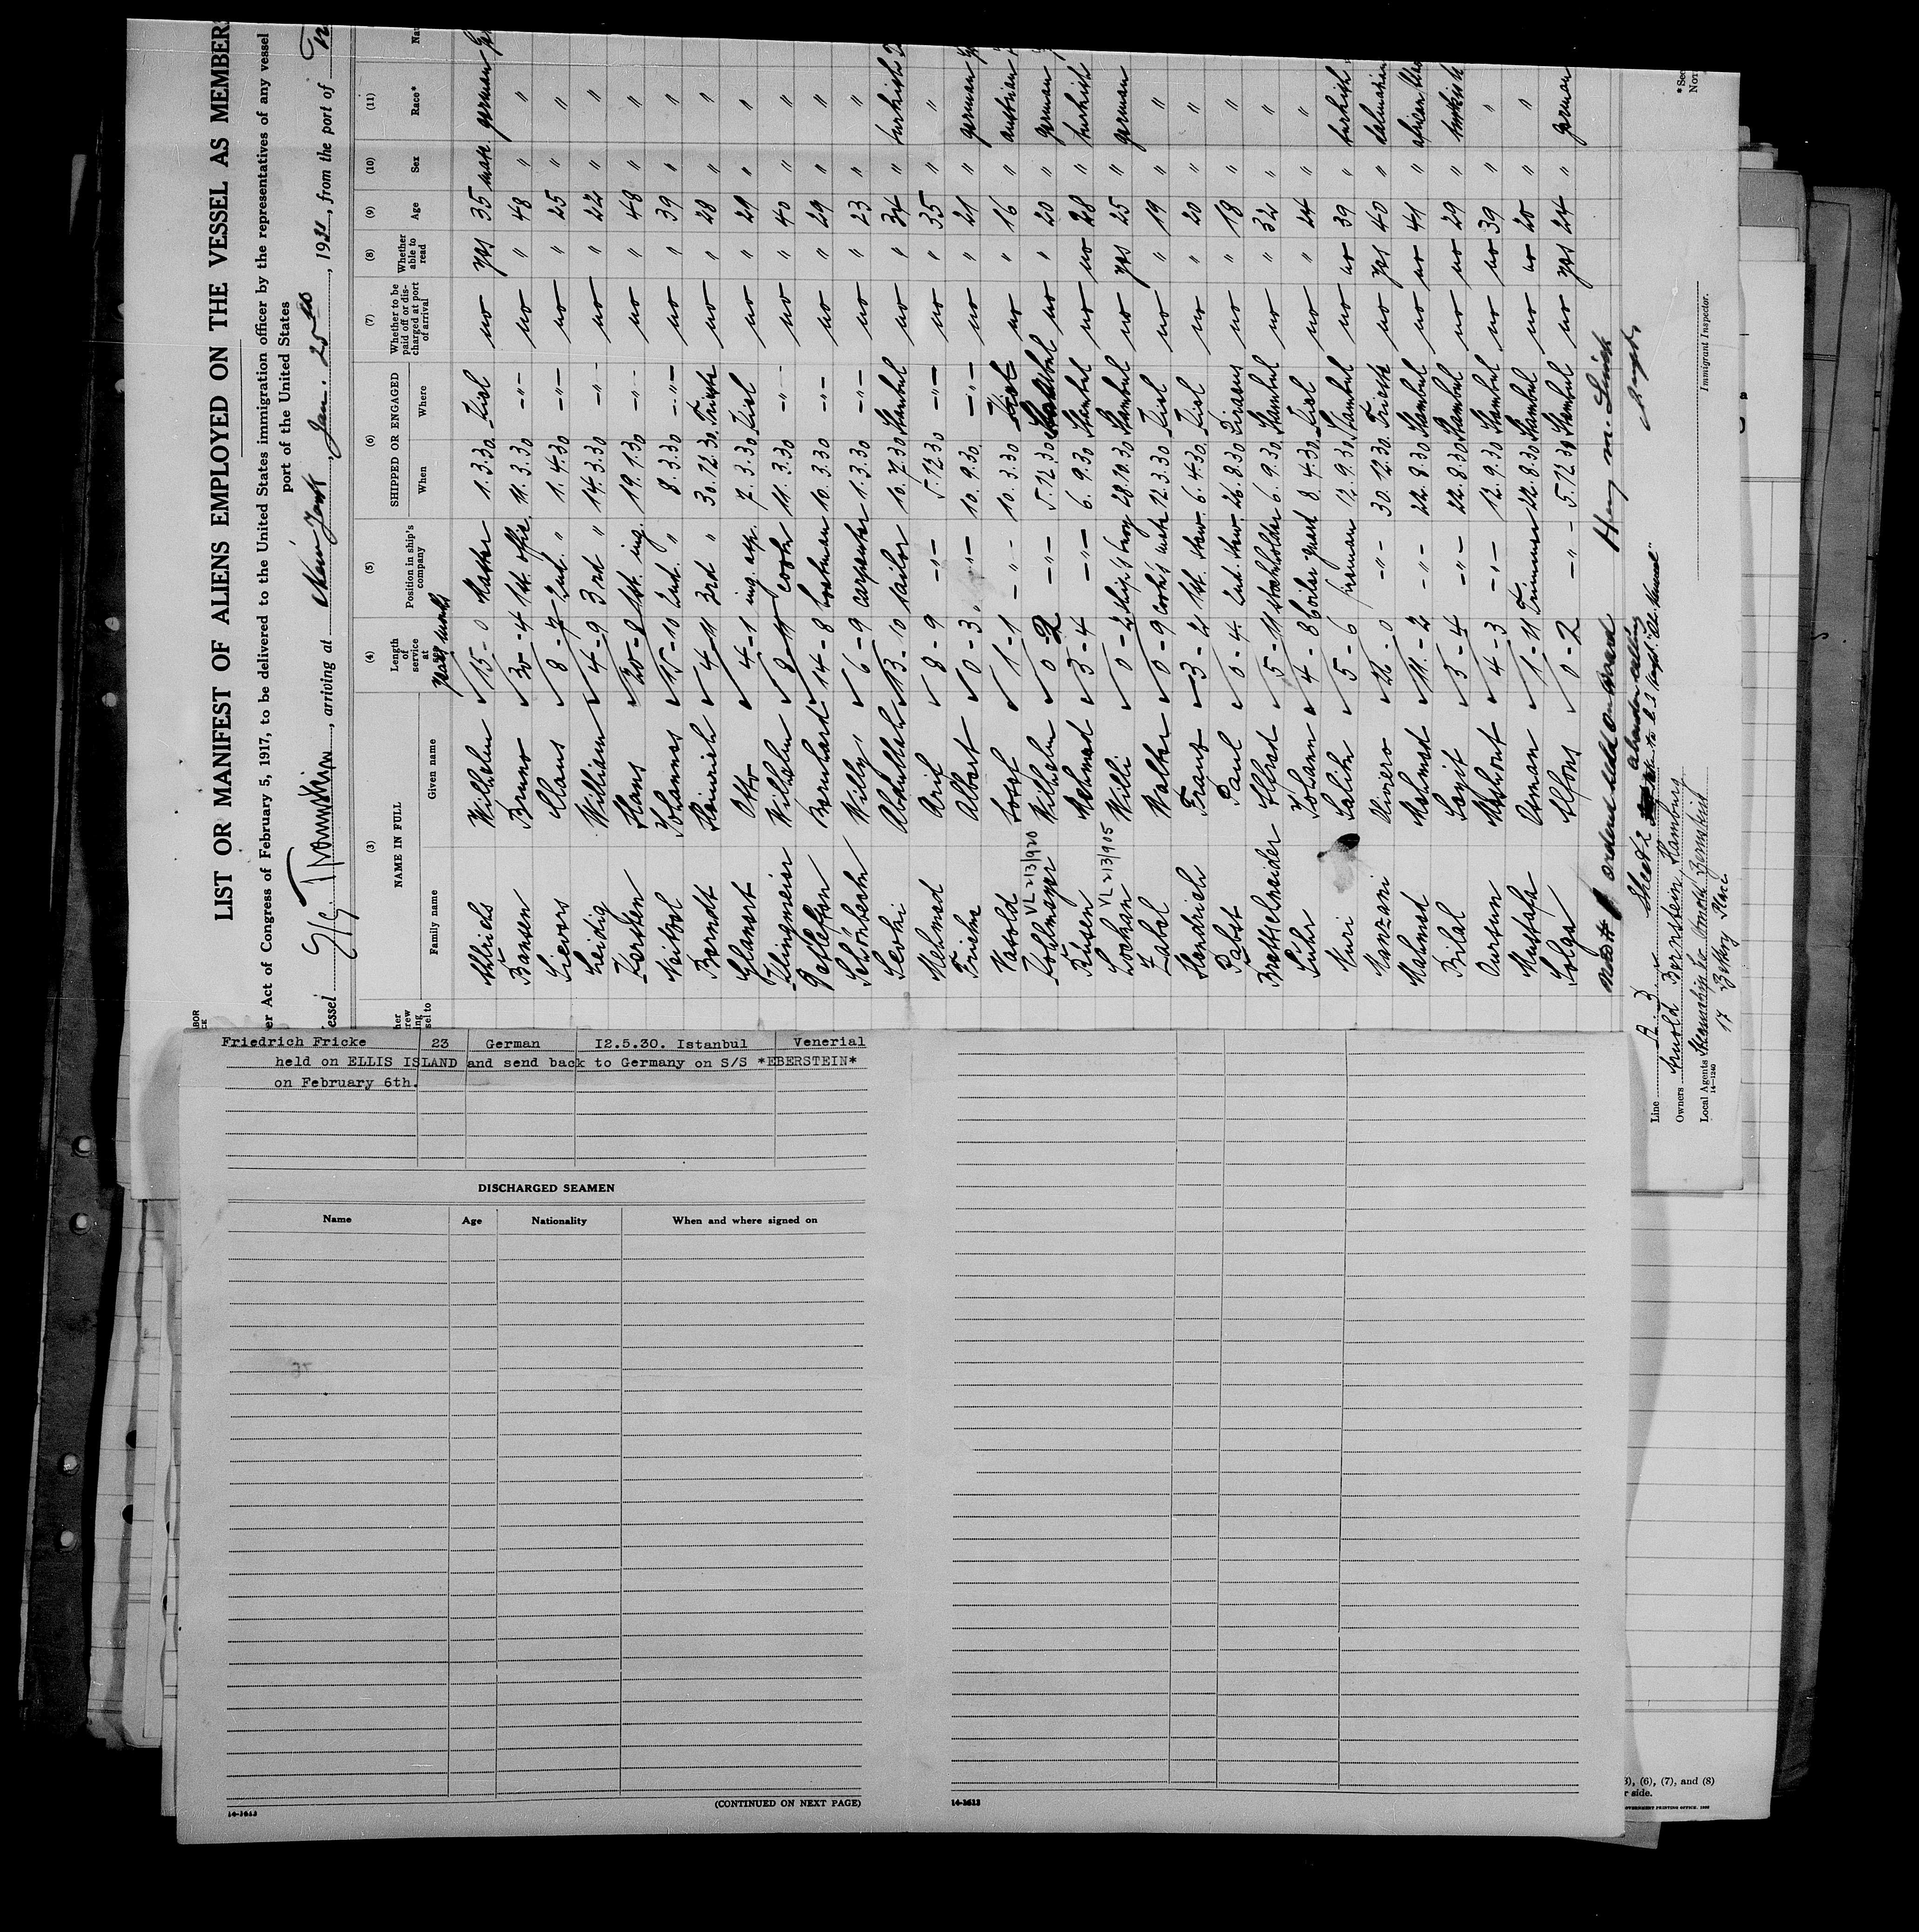 LIST OR MANIFEST OF ALIENS EMPLOYED ON THE VESSEL AS MEMBER
er Act of Congress of February 5, 1917, to be delivered to the United States immigration officer by the representatives of any vessel
port of the United States
essel , arriving at New York Jan. 20th, 1931, from the port of
(3) (4) (5) (6) (7) (8) (9) (10) (11)
NAME IN FULL Length of service at sea Position in ship's company SHIPPED OR ENGAGED Whether to be paid off or discharged at port of arrival Whether able to read Age Sex Race*
Family name Given name years months When Where
Ahlrichs Wilhelm 15-0 Master 1.3.30. Kiel no yes 35 male german
Bansen Bruno 30-4 1st. offic. 11.3.30 -"- no " 48 " "
Sievers Claus 8-7 2nd. " 1.4.30 -"- no " 25 " "
Leidig William 4-9 3rd " 14.3.30 -"- no " 22 " "
Karsten Hans 20-8 1st. ing. 19.1.30 -"- no " 48 " "
Neitzel Johannes 15-10 2nd. " 8.3.30 -"- no " 39 " "
Berndt Heinrich 4-11 3rd " 30.12.30. Trieste no " 28 " "
Glanert Otto 4-1 ing. asp. 7.3.30 Kiel no " 29 " "
Klingmeier Wilhelm 8-11 cook 11.3.30 -"- no " 40 " "
Bernhard 14-8 boatsman 10.3.30 -"- no " 29 " "
Schönbeck Willy 6-9 carpenter 1.3.30 -"- no " 23 " "
Abdullah 13-10 sailor 10.7.30 Stambul no " 34 " turkish
Mehmed Arif 8-9 -"- 5.12.30 -"- no " 35 " "
Frieke Albert 0-3 " 10.9.30 -"- no " 21 " german
Vasold Josef 1-1 -"- 10.3.30 Kiel no " 16 " austrian
VL 213/920
Kohlmeyer Wilhelm 0-2 -"- 5.12.30 Stambul no " 20 " german
Mehmed 3-4 -"- 6.9.30 Stambul no no 28 " turkish
VL 213/905
Lochan Willi 0-2 ship's boy 28.10.30 Stambul no yes 25 " german
Zabel Walter 0-9 cook's mate 12.3.30 Kiel no " 19 " "
Hendrich Franz 3-2 1st. stew. 6.4.30. Kiel no " 20 " "
Pabst Paul 0-4 2nd. stew. 26.8.30 Piraeus no " 18 " "
Brettschneider Alfred 5-11 storeholder 6.9.30 Stambul no " 32 " "
Lühr Johann 4-8 boiler guard 8.4.30 Kiel no " 24 " "
Nuri Salih 5-6 fireman 12.9.30 Stambul no no 39 " turkish
Manzani 22-0 -"- 30.12.30. Trieste no yes 40 "
Mahmud Mehmed 11-2 -"- 22.8.30 Stambul no no 41 "
Bilal 3-4 -"- 22.8.30 Stambul no no 29 " turkish
Dursun 4-3 -"- 12.9.30 Stambul no no 39 " "
Mustafa Osman 1-11 Trimmer 22.8.30 Stambul no no 20 " "
Solga Alfons 0-2 -"- 5.12.30 Stambul no yes 24 " german
ordered held on board
Sheet 2
Line
Owners Arnold Bernstein, Hamburg
Local Agents Steamship Co. Arnold Bernstein
14—1240
17 Battery Place
Immigrant Inspector.
Friedrich Fricke 23 German I2.5.30. Istanbul Venerial
held on ELLIS ISLAND and send back to Germany on S/S *EBERSTEIN*
on February 6th.
DISCHARGED SEAMEN
Name Age Nationality When and where signed on
14-1613 (CONTINUED ON NEXT PAGE) 14-1613
3), (6), (7), and (8)
r side.
GOVERNMENT PRINTING OFFICE